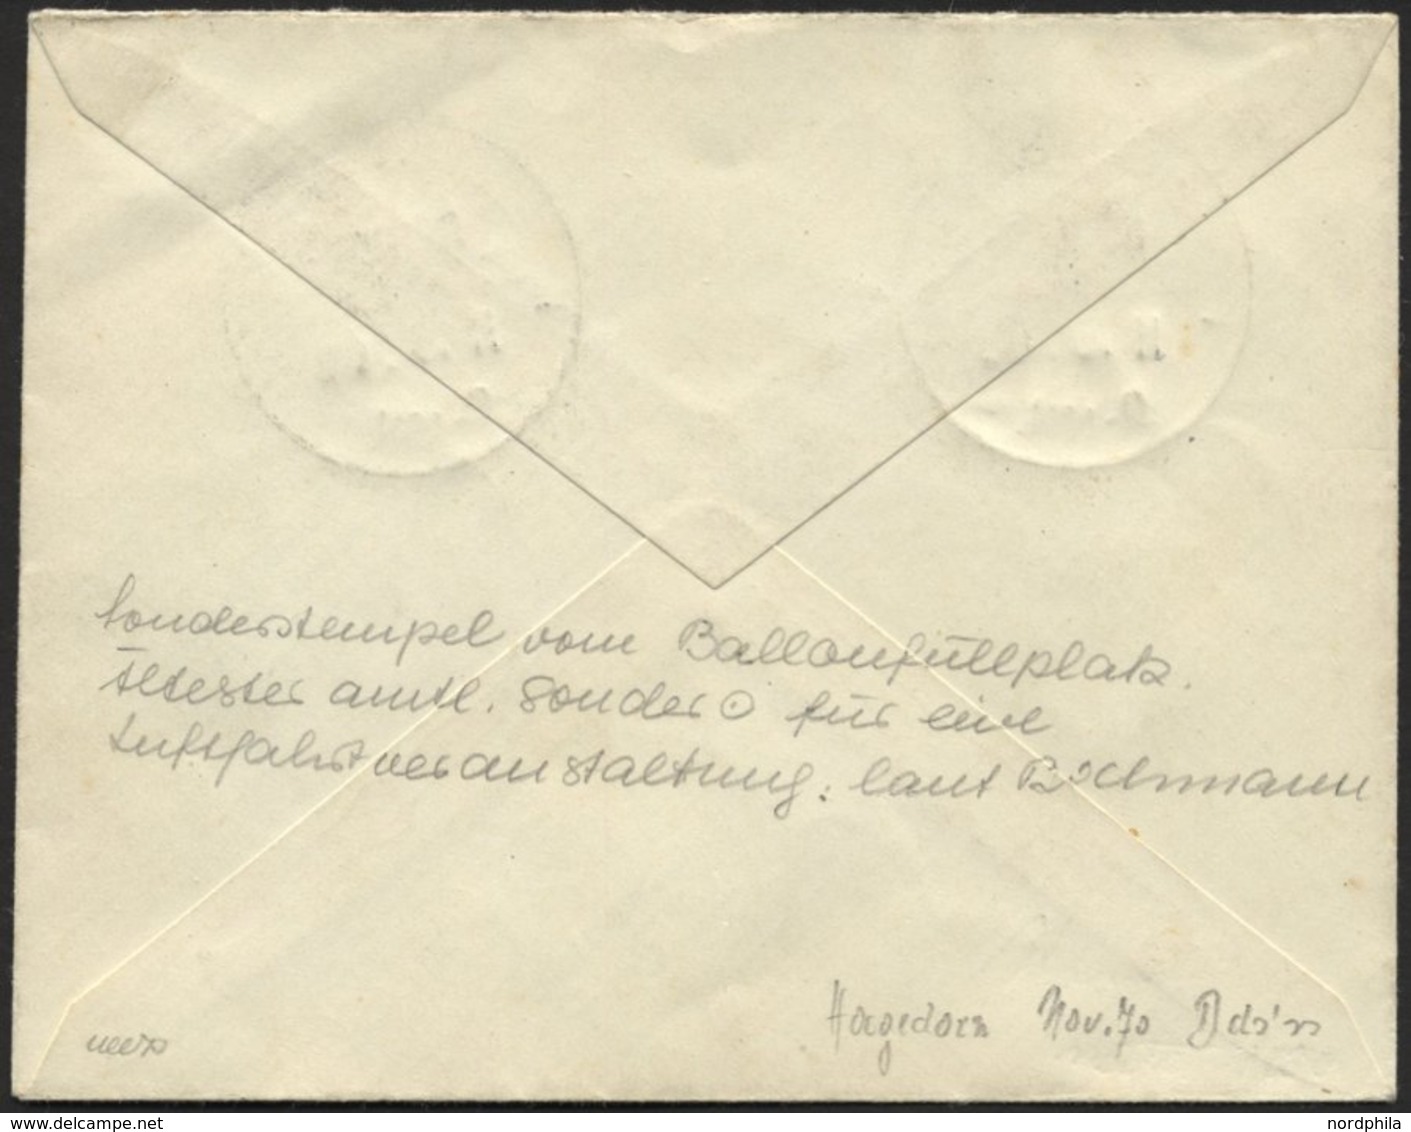 Sonderstempel vom Ballonfüllplatz.
Ältester amtl. Sonder⊙ für eine
Luftfahrtveranstaltung: laut Bochmann
Hagedorn Nov. 70
www.delcampe.net
nordphila